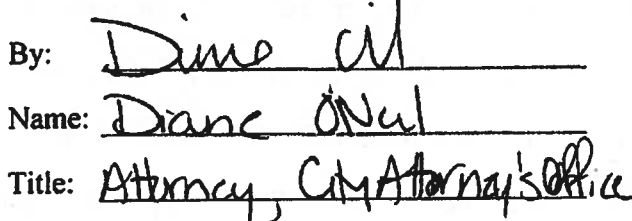 By:
Name: Diane O'Neal
Title: Attorney, City Attorney's Office